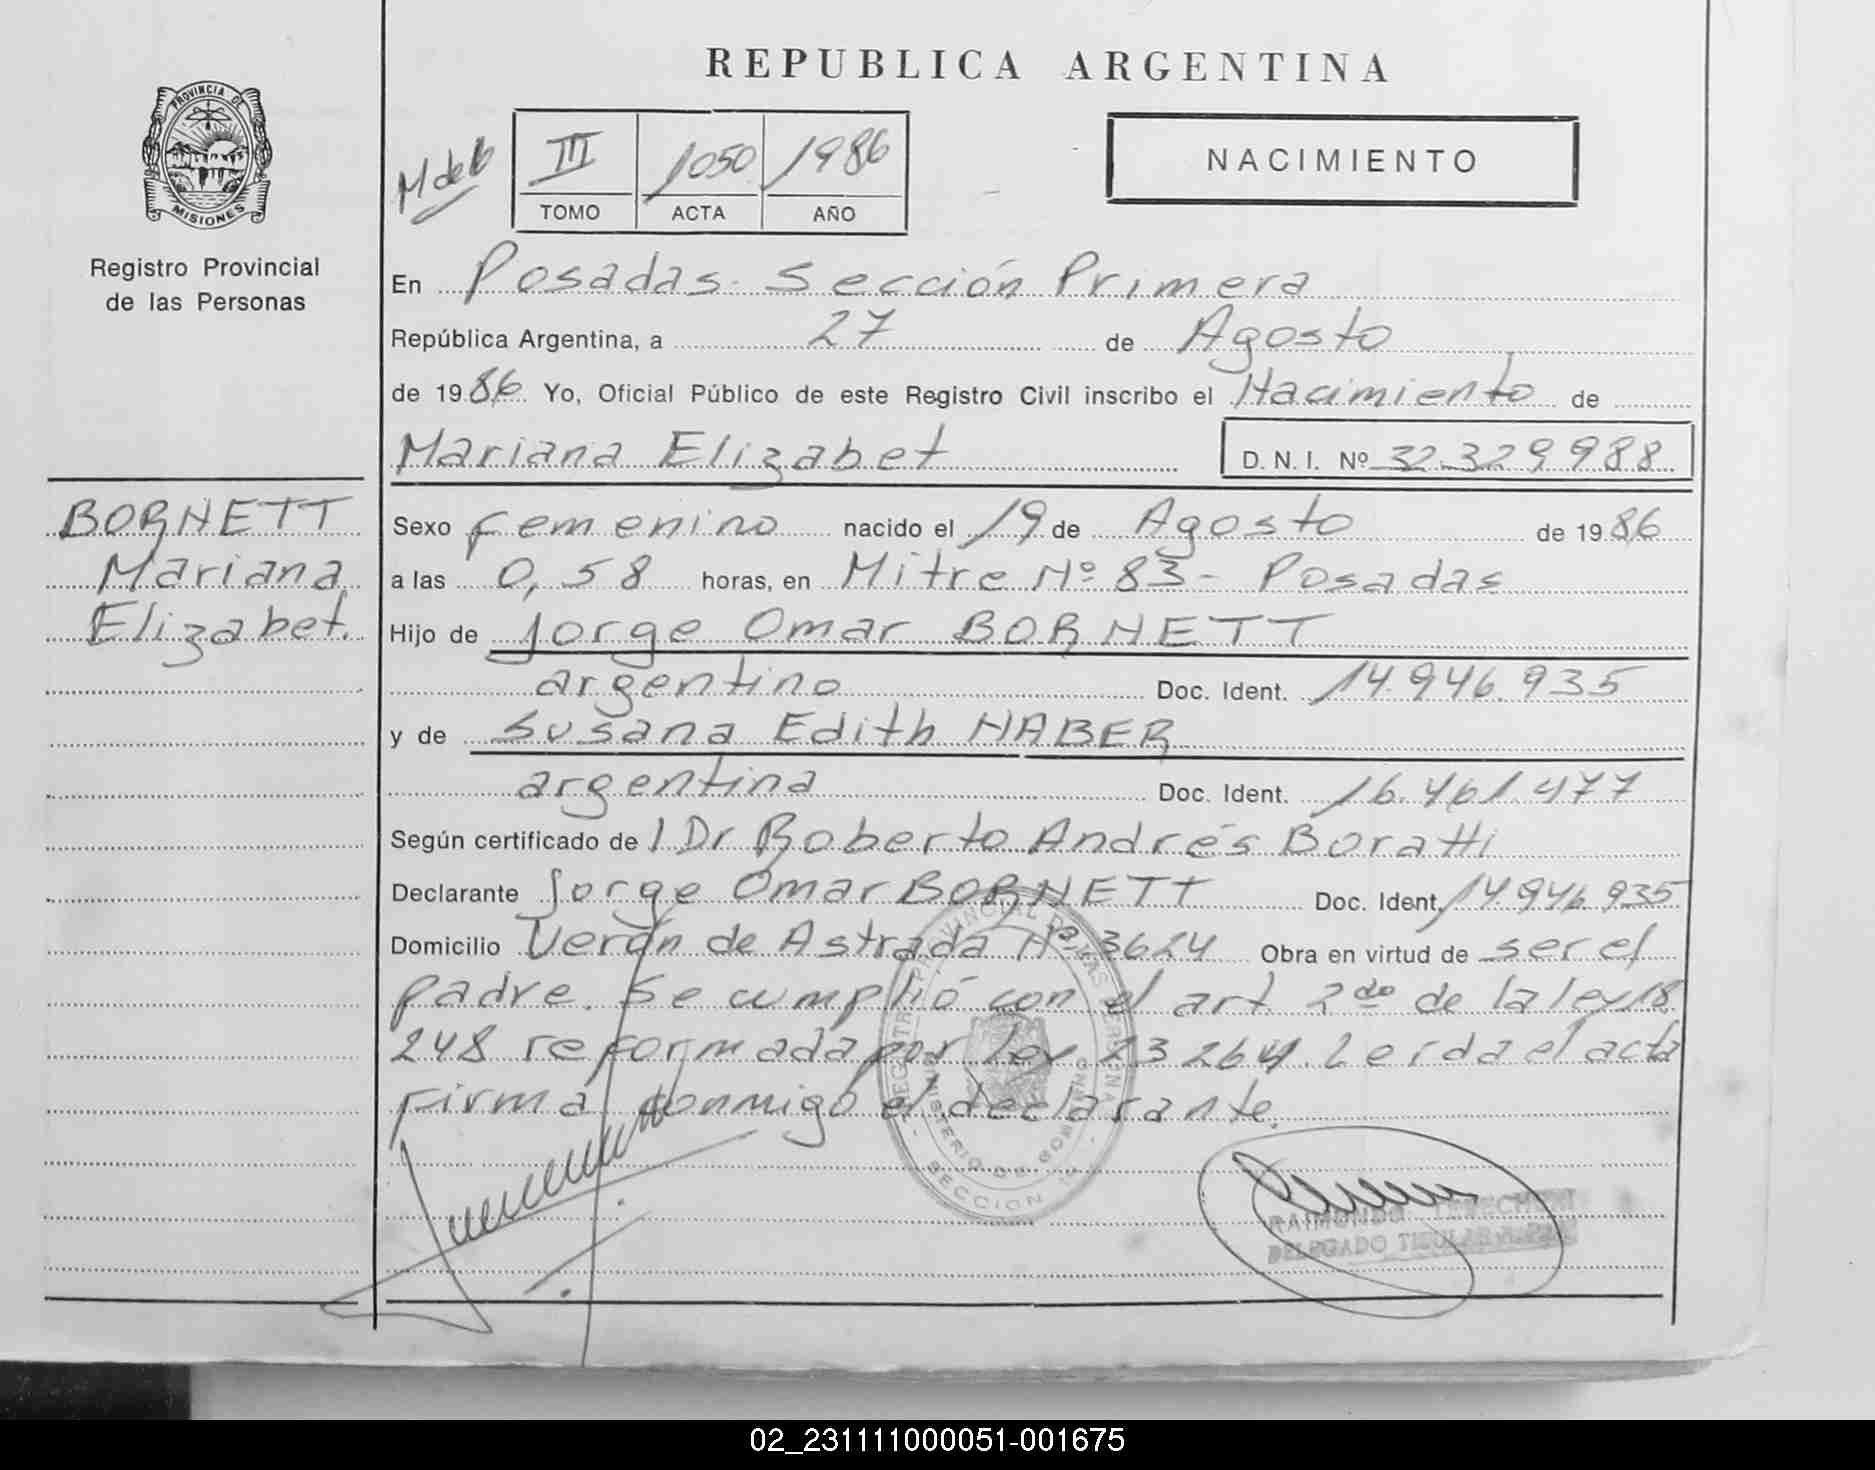 REPUBLICA ARGENTINA
PROVINCIA DE
MISIONES
Registro Provincial
de las Personas
III 1050 1986
TOMO ACTA AÑO
NACIMIENTO
En Posadas. Sección Primera
República Argentina, a 27 de Agosto
de 1986. Yo, Oficial Público de este Registro Civil inscribo el Nacimiento de
Mariana Elizabet D. N. I. Nº 32.329.988
BORNETT
Mariana
Elizabet.
Sexo femenino nacido el 19 de Agosto de 1986
a las 0,58 horas, en Mitre Nº 83 - Posadas
Hijo de Jorge Omar BORNETT
argentino Doc. Ident. 14.946.935
y de Susana Edith NABER
argentina Doc. Ident. 16.461.477
Según certificado de l Dr Roberto Andrés Boratti
Declarante Jorge Omar BORNETT Doc. Ident. 14.946.935
Domicilio Verón de Astrada Nº 3624 Obra en virtud de ser el
padre. Se cumplió con el art. 2do de la ley 18.
248 reformada por ley 23264. Leida el acta
firma conmigo el declarante.
REGISTRO PROVINCIAL DE LAS PERSONAS
MINISTERIO DE GOBIERNO
SECCION 1a
RAIMUNDO
DELEGADO TITULAR
02_231111000051-001675